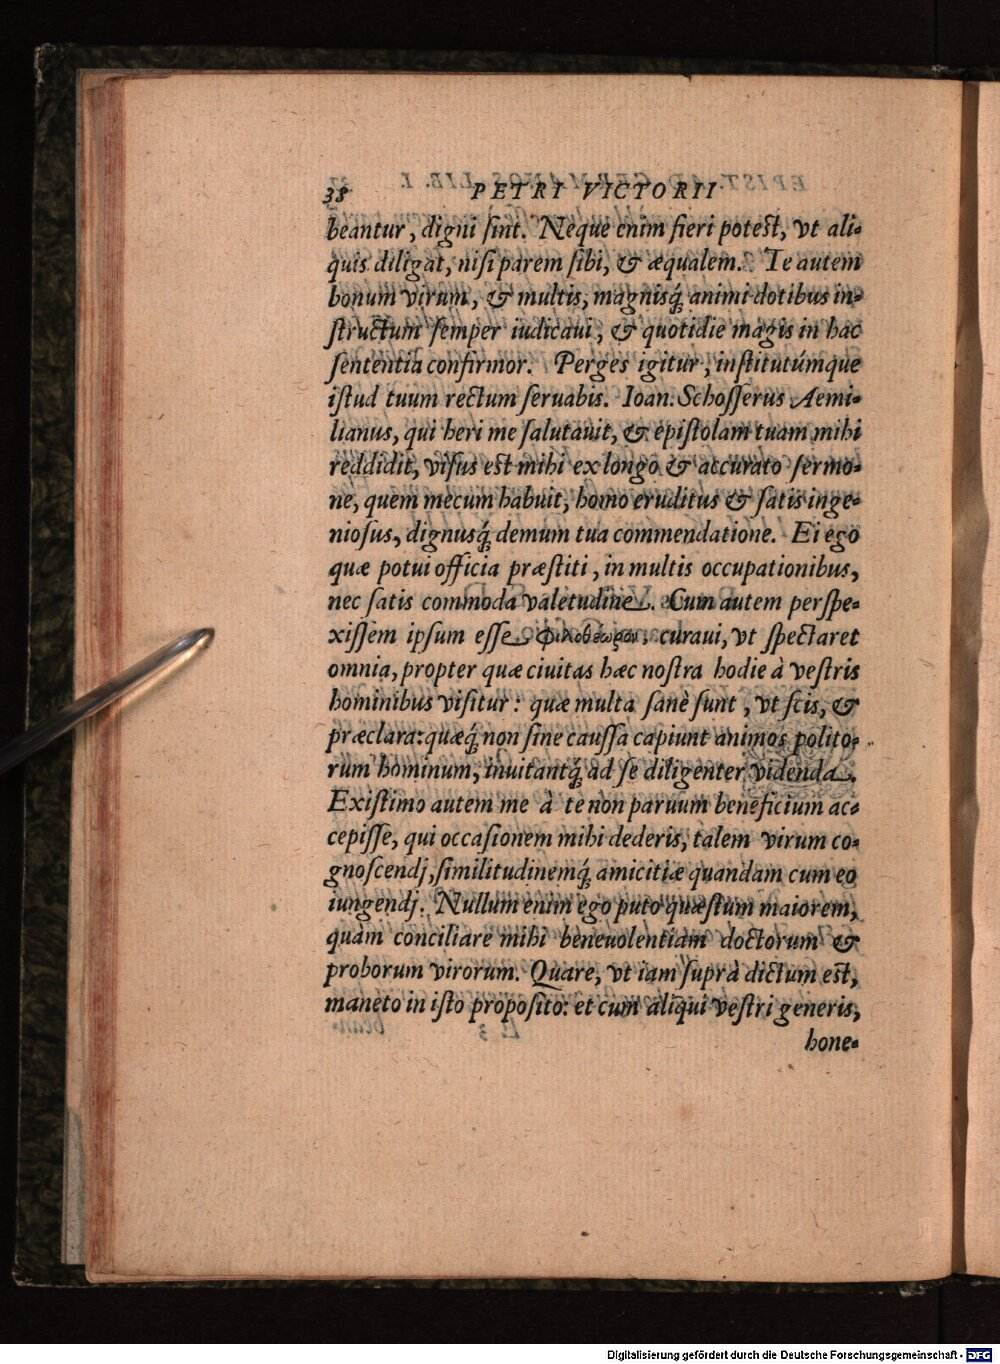 38 PETRI VICTORII
beantur, digni ſint. Neque enim fieri poteſt, vt ali-
quis diligat, niſi parem ſibi, & æqualem. Te autem
bonum virum, & multis, magnisq́; animi dotibus in-
ſtructum ſemper iudicaui, & quotidie magis in hac
ſententia confirmor. Perges igitur, inſtitutúmque
iſtud tuum rectum ſeruabis. Ioan. Schoſſerus Aemi-
lianus, qui heri me ſalutauit, & epiſtolam tuam mihi
reddidit, viſus est mihi ex longo & accurato ſermo-
ne, quem mecum habuit, homo eruditus & ſatis inge-
nioſus, dignusq́; demum tua commendatione. Ei ego
quæ potui officia præſtiti, in multis occupationibus,
nec ſatis commoda valetudine. Cum autem perſpe-
xiſſem ipſum eſſe φιλοθέωρον, curaui, vt ſpectaret
omnia, propter quæ ciuitas hæc noſtra hodie à veſtris
hominibus viſitur: quæ multa ſanè ſunt, vt ſcis, &
præclara: quæq́; non ſine cauſſa capiunt animos polito-
rum hominum, inuitantq́; ad ſe diligenter videnda.
Exiſtimo autem me à te non paruum beneficium ac-
cepiſſe, qui occaſionem mihi dederis, talem virum co-
gnoſcendj, ſimilitudinemq́; amicitiæ quandam cum eo
iungendj. Nullum enim ego puto quæſtum maiorem,
quàm conciliare mihi beneuolentiam doctorum &
proborum virorum. Quare, vt iam ſuprà dictum eſt,
maneto in iſto propoſito: et cum aliqui veſtri generis,
hone-
Digitalisierung gefördert durch die Deutsche Forschungsgemeinschaft - DFG